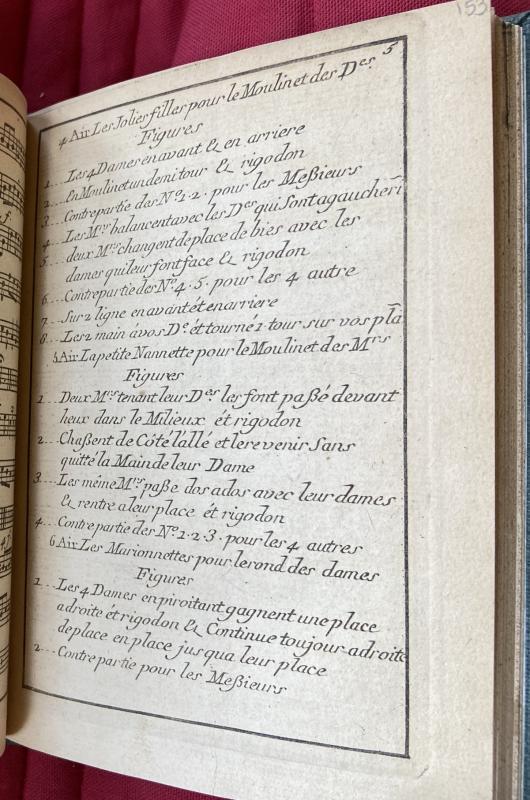 153
5
4 Air Les Jolies filles pour le Moulinet des Des.
Figures
1... Les 4 Dames en avant & en arriere
2... En Moulinet un demi tour & rigodon
3... Contre partie des No 1. 2. pour les Meßieurs
4... Les Mrs balancent avec les Des qui sont a gauche ri
5... deux Mrs changent de place de bies avec les
dames qui leur font face & rigodon
6... Contre partie des No 4. 5. pour les 4 autre
7... Sur 2 ligne en avant ét en arriere
8... Les 2 main á vos De. ét tourné 1 tour sur vos pla
5 Air La petite Nannette pour le Moulinet des Mrs
Figures
1... Deux Mrs tenant leur Des les font paßé devant
heux dans le Milieux ét rigodon
2... Chaßent de Côté lállé et le revenir Sans
quitté la Main de leur Dame
3... Les même Mrs paße dos a dos avec leur dames
& rentre a leur place ét rigodon
4... Contre partie des No 1. 2. 3. pour les 4 autres
6 Air Les Marionnettes pour le rond des dames
Figures
1... Les 4 Dames en piroitant gagnent une place
a droite ét rigodon & Continue toujour a droite
de place en place jusqua leur place
2... Contre partie pour les Meßieurs